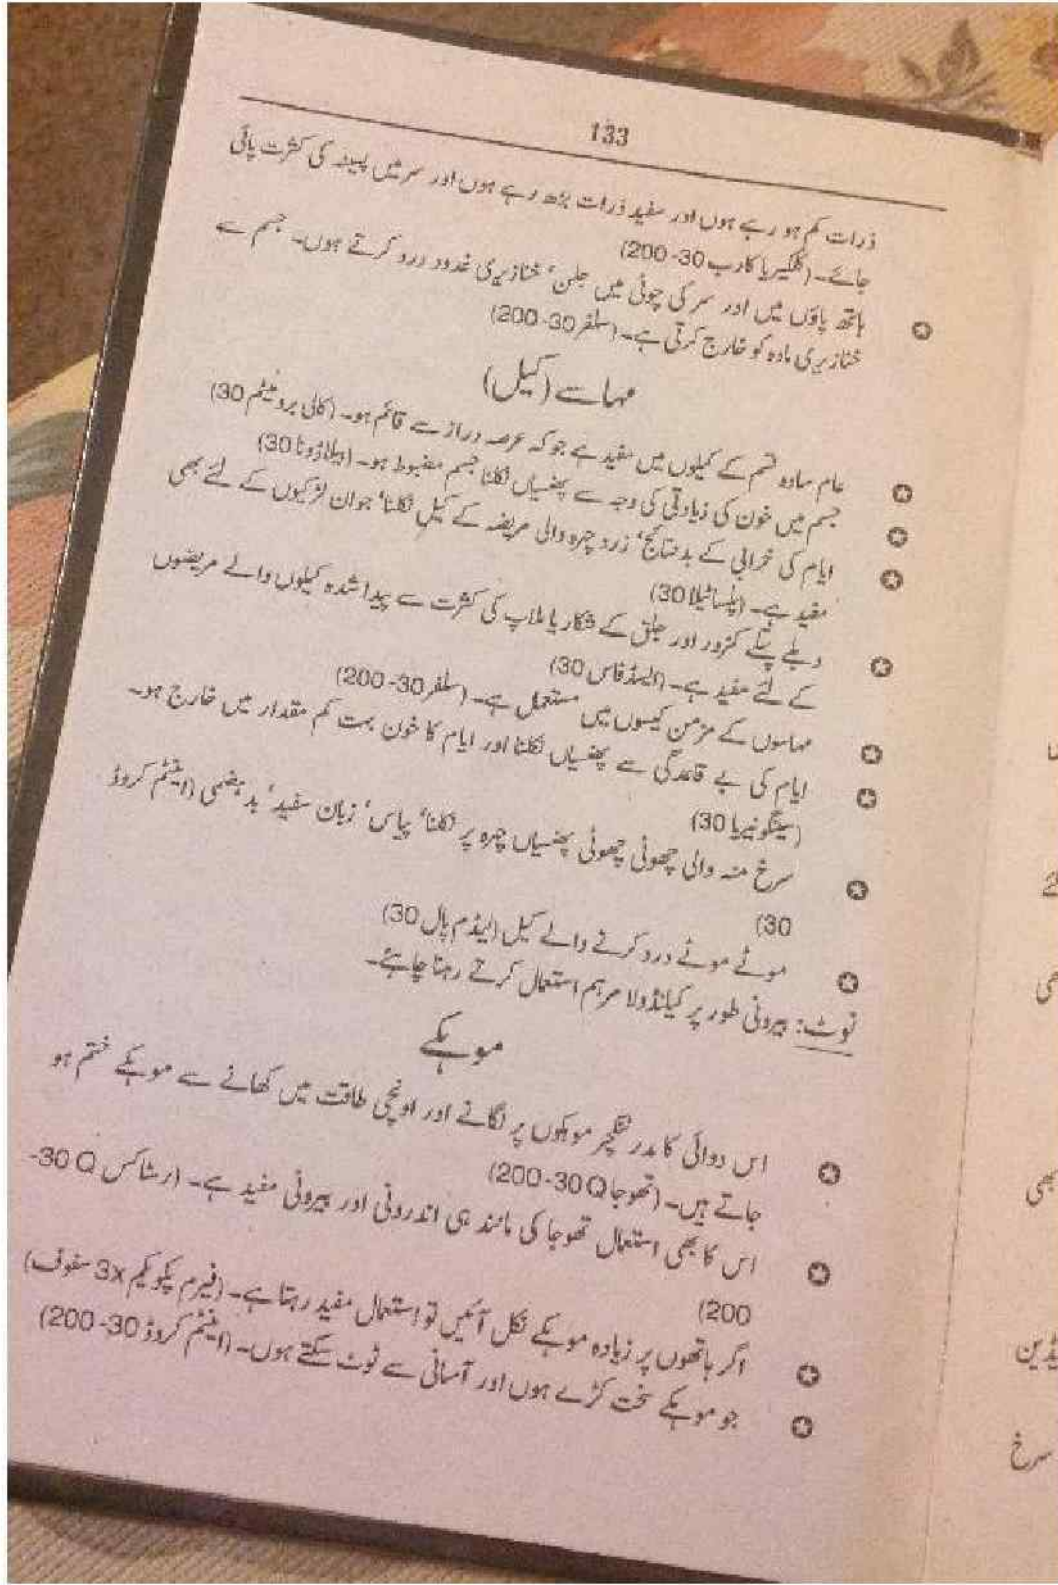 133
ذرات کم ہو رہے ہوں اور سفید ذرات بڑھ رہے ہوں اور سر میں پسینہ کی کثرت پائی
جائے۔ (کلکیریا کارب 30-200)
ہاتھ پاؤں میں اور سر کی چوٹی میں جلن، خنازیری غدود درد کرتے ہوں۔ جسم سے
خنازیری مادہ کو خارج کرتی ہے۔ (سلفر 30-200)
مہاسے (کیل)
عام سادہ قسم کے کیلوں میں مفید ہے جو کہ عرصہ دراز سے قائم ہو۔ (کالی برومیٹم 30)
جسم میں خون کی زیادتی کی وجہ سے پھنسیاں نکلنا جسم مضبوط ہو۔ (بیلاڈونا 30)
ایام کی خرابی کے بد نتائج، زرد چہرہ والی مریضہ کے کیل نکلنا، جوان لڑکیوں کے لئے بھی
مفید ہے۔ (پلساٹیلا 30)
دبلے پتلے کمزور اور جلق کے شکار یا ملاپ کی کثرت سے پیدا شدہ کیلوں والے مریضوں
کے لئے مفید ہے۔ (ایسڈ فاس 30)
مہاسوں کے مزمن کیسوں میں مستعمل ہے۔ (سلفر 30-200)
ایام کی بے قاعدگی سے پھنسیاں نکلنا اور ایام کا خون بہت کم مقدار میں خارج ہو۔
(سینگونیریا 30)
سرخ منہ والی چھوٹی چھوٹی پھنسیاں چہرہ پر نکلنا، پیاس، زبان سفید، بد ہضمی (اینٹم کروڈ
30)
موٹے موٹے درد کرنے والے کیل (لیڈم پال 30)
نوٹ: بیرونی طور پر کیلنڈولا مرہم استعمال کرتے رہنا چاہئے۔
موہکے
اس دوائی کا مدر ٹنکچر موہکوں پر لگانے اور اونچی طاقت میں کھانے سے موہکے ختم ہو
جاتے ہیں۔ (تھوجا Q 30-200)
اس کا بھی استعمال تھوجا کی مانند ہی اندرونی اور بیرونی مفید ہے۔ (رسٹاکس Q 30-
200)
اگر ہاتھوں پر زیادہ موہکے نکل آئیں تو استعمال مفید رہتا ہے۔ (فیرم پکریکم 3x سفوف)
جو موہکے سخت کڑے ہوں اور آسانی سے ٹوٹ سکتے ہوں۔ (اینٹم کروڈ 30-200)
سرخ